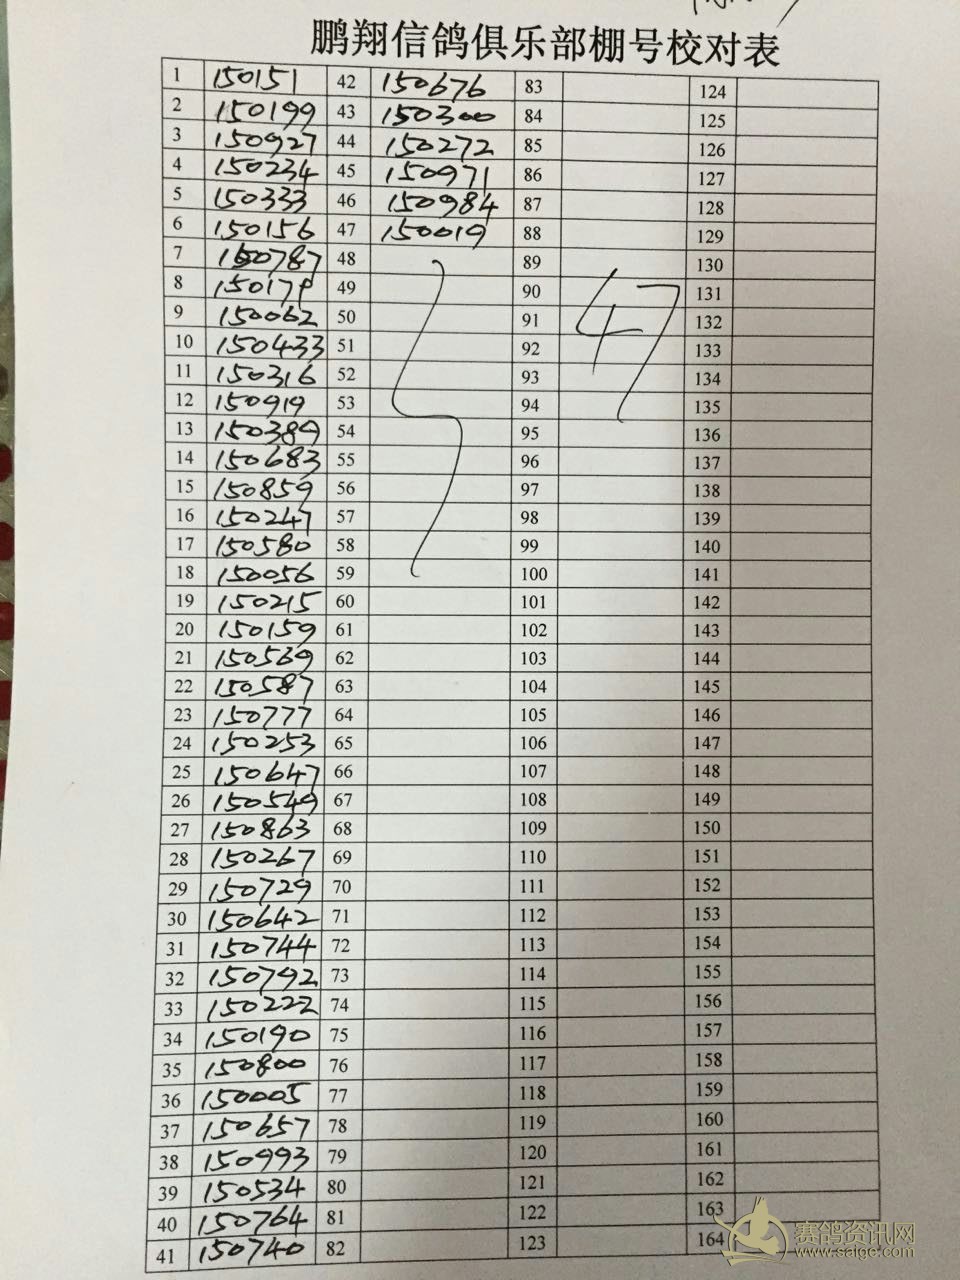 鹏翔信鸽俱乐部棚号校对表
1 150151 42 150676 83 124
2 150199 43 150300 84 125
3 150927 44 150272 85 126
4 150234 45 150971 86 127
5 150333 46 150984 87 128
6 150156 47 150019 88 129
7 150787 48 89 130
8 150179 49 90 131
9 150062 50 91 47 132
10 150433 51 92 133
11 150316 52 93 134
12 150919 53 94 135
13 150389 54 95 136
14 150683 55 96 137
15 150859 56 97 138
16 150247 57 98 139
17 150580 58 99 140
18 150056 59 100 141
19 150215 60 101 142
20 150159 61 102 143
21 150569 62 103 144
22 150587 63 104 145
23 150777 64 105 146
24 150253 65 106 147
25 150647 66 107 148
26 150549 67 108 149
27 150863 68 109 150
28 150267 69 110 151
29 150729 70 111 152
30 150642 71 112 153
31 150744 72 113 154
32 150792 73 114 155
33 150222 74 115 156
34 150190 75 116 157
35 150800 76 117 158
36 150005 77 118 159
37 150657 78 119 160
38 150993 79 120 161
39 150534 80 121 162
40 150764 81 122 163
41 150740 82 123 164
赛鸽资讯网
www.saige.com